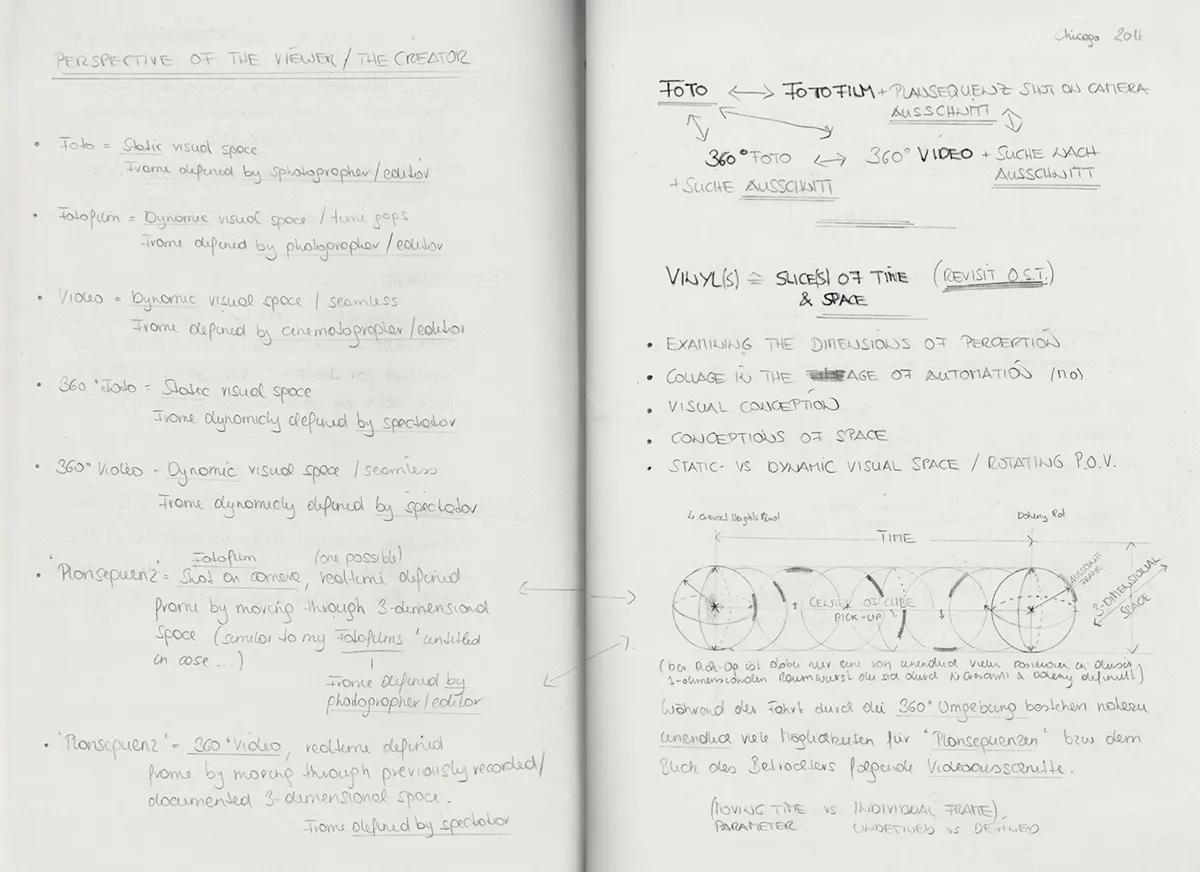 PERSPECTIVE OF THE VIEWER / THE CREATOR
• Foto = Static visual space
Frame defined by sphotographer/editior
• Fotofilm = Dynamic visual space / time gaps
Frame defined by photographer / editor
• Video = Dynamic visual space / seamless
Frame defined by cinematographer/editior
• 360° Foto = Static visual space
Frame dynamicly defined by spectator
• 360° Video - Dynamic visual space / seamless
Frame dynamicly defined by spectator
Fotofilm (one possible)
• 'Plansequenz' = Shot on camera, realtime defined
frame by moving through 3-dimensional
space (similar to my Fotofilms 'untitled
in case ...)
Frame defined by
photographer/editor
• 'Plansequenz' = 360° Video, realtime defined
frame by moving through previously recorded/
documented 3-dimensional space.
Frame defined by spectator
Chicago 2011
FOTO ↔ FOTOFILM + PLANSEQUENZ SHOT ON CAMERA
AUSSCHNITT
360° FOTO ↔ 360° VIDEO + SUCHE NACH
+ SUCHE AUSSCHNITT AUSSCHNITT
VINYL(S) ≙ SLICE(S) OF TIME (REVISIT O.S.T.)
& SPACE
• EXAMINING THE DIMENSIONS OF PERCEPTION
• COLLAGE IN THE AGE OF AUTOMATION /no).
• VISUAL CONCEPTION
• CONCEPTIONS OF SPACE
• STATIC- VS DYNAMIC VISUAL SPACE / ROTATING P.O.V.
N. Crescent Heights Blvd Doheny Rd
TIME
AUSSCHNITT
FRAME
3-DIMENSIONAL
SPACE
CENTER OF CUBE
PICK-UP
(der Pick-Up ist dabei nur eine von unendlich vielen Positionen in dieser
3-dimensionalen Raumwurst die sich durch N. Crescent & Doheny definiert)
Während der Fahrt durch die 360° Umgebung bestehen nahezu
unendlich viele Möglichkeiten für "Plansequenzen" bzw dem
Blick des Betrachters folgende Videoausschnitte.
(MOVING TIME VS INDIVIDUAL FRAME)
PARAMETER UNDEFINED VS DEFINED